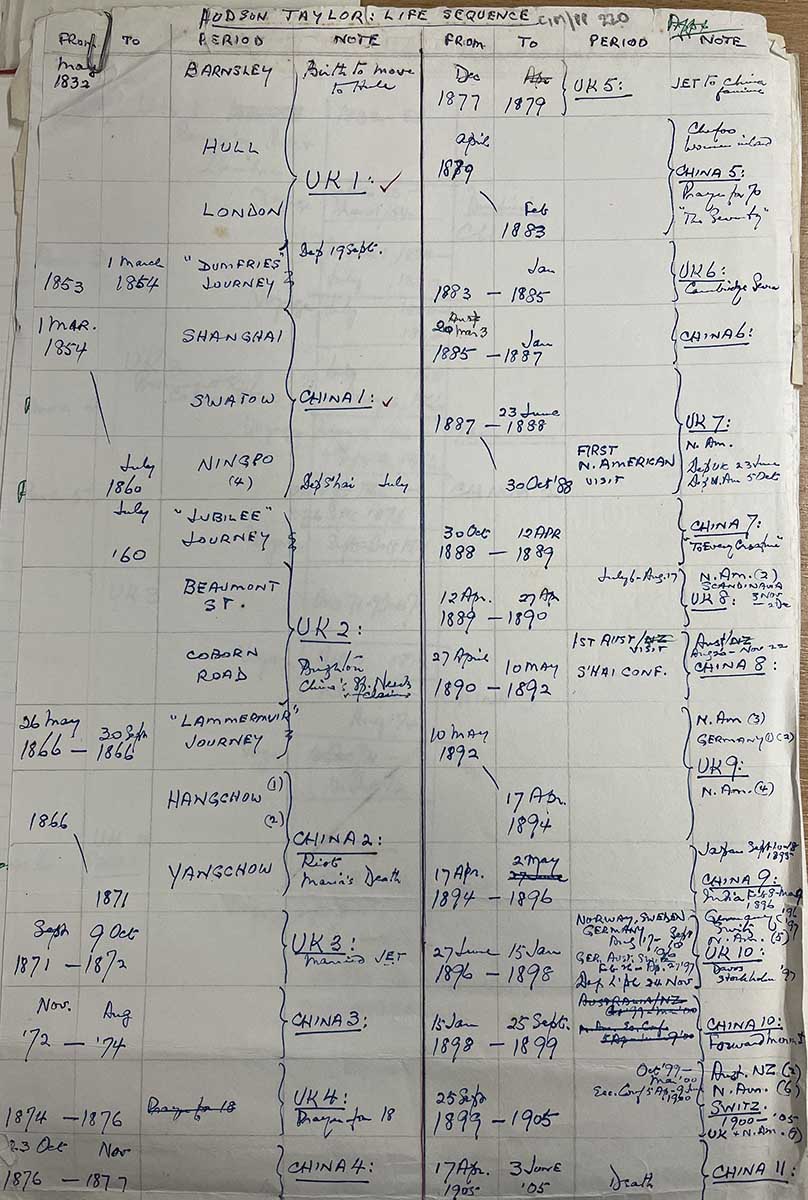 HUDSON TAYLOR: LIFE SEQUENCE CIM/PP 220
FROM TO PERIOD NOTE
May
1832
BARNSLEY
Birth to move
to Hull
HULL
UK 1: ✓
LONDON
Dep 19 Sept.
1853
1 March
1854
"DUMFRIES"
JOURNEY
1 MAR.
1854
SHANGHAI
SWATOW
CHINA 1: ✓
July
1860
NINGPO
(4)
Dep S'hai July
July
'60
"JUBILEE"
JOURNEY
BEAUMONT
ST.
UK 2:
COBORN
ROAD
Brighton
China's Sp. Needs
+ Claims
26 May
1866 —
30 Sept
1866
"LAMMERMUIR"
JOURNEY
1866
HANGCHOW (1)
(2)
CHINA 2:
Riot
Maria's Death
YANGCHOW
1871
Sept 9 Oct
1871 — 1872
UK 3:
Married JET
Nov. Aug
'72 — '74
CHINA 3:
1874 — 1876
Prayer for 18
UK 4:
Prayer for 18
23 Oct Nov
1876 — 1877
CHINA 4:
FROM TO PERIOD NOTE
Dec
1877
Apr
1879
UK 5:
JET to China
famine
April
1879
Feb
1883
Chefoo
Women inland
CHINA 5:
Prayer for 70
"The Seventy"
Jan
1883 — 1885
UK 6:
Cambridge Seven
Jan
1885 — 1887
CHINA 6:
1887 —
23 June
1888
30 Oct '88
FIRST
N. AMERICAN
VISIT
UK 7:
N. Am.
Dep UK 23 June
Dep N. Am 5 Oct
30 Oct 12 APR
1888 — 1889
CHINA 7:
"To Every Creature"
July 6 - Aug. 17
N. Am. (2)
SCANDINAVIA
UK 8: 3 Nov
12 Apr. 27 Ap
1889 — 1890
1ST AUST/NZ
VISIT
S'HAI CONF.
Aust/NZ
Nov 22
CHINA 8:
27 April 10 MAY
1890 — 1892
10 MAY
1892
17 Apr.
1894
N. Am (3)
GERMANY (1) (2)
UK 9:
N. Am. (4)
Japan Sept
1895
17 Apr. 2 May
27 June
1894 — 1896
CHINA 9:
India
1896
NORWAY, SWEDEN
GERMANY
Aug 17 - Sept
Germany
Switz
N. Am. (5)
UK 10:
Davos
Stockholm '97
27 June 15 Jan
1896 — 1898
24 Nov
AUSTRALIA/NZ
15 Jan 25 Sept.
1898 — 1899
CHINA 10:
Forward Movt
Oct '99 —
Mar '00
1900
25 Sept
1899 — 1905
Aust. NZ (2)
N. Am. (6)
SWITZ.
1900 — '05
UK + N. Am.
17 Apr. 3 June
1905 '05
Death
CHINA 11: